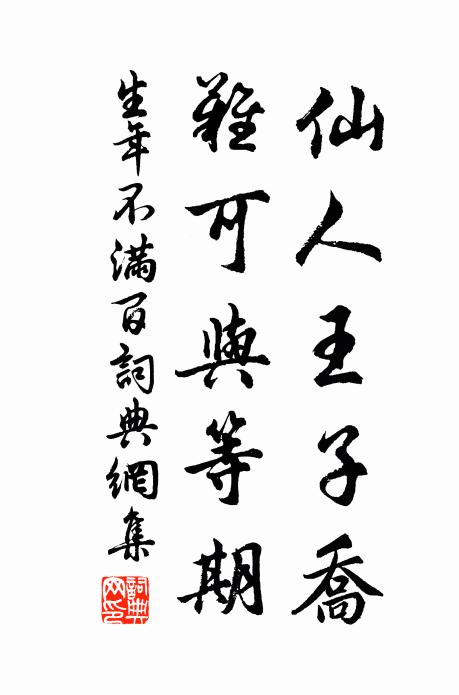 仙人王子喬
難可與等期
生年不滿百詞典網集
詞典
网印